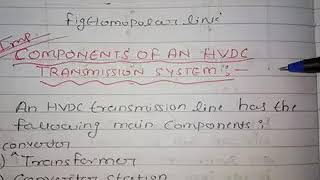 fig Homopolar link
Imp
COMPONENTS OF AN HVDC
TRANSMISSION SYSTEM :-
An HVDC transmission line has the
following main components :
convertor
) ^ Transformer
) Converter station